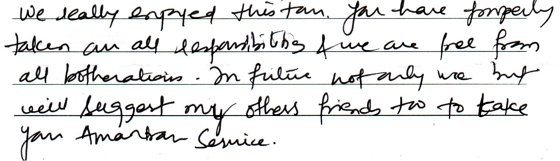 We really enjoyed this tour. You have properly
taken our all responsibilities & we are free from
all botherations. In future not only we but
will suggest my others friends too to take
your Amartrav Service.